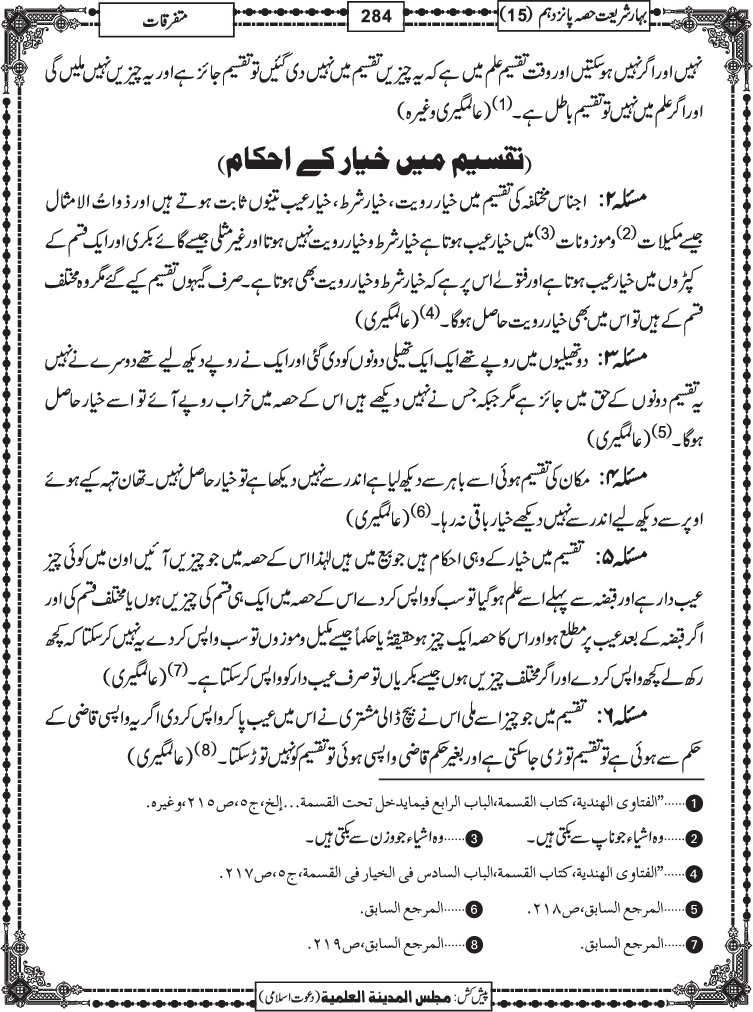 بہارِ شریعت حصہ پانزدہم (15)
284
متفرقات
نہیں اور اگر نہیں ہو سکتیں اور وقت تقسیم علم میں ہے کہ یہ چیزیں تقسیم میں نہیں دی گئیں تو تقسیم جائز ہے اور یہ چیزیں نہیں ملیں گی
اور اگر علم میں نہیں تو تقسیم باطل ہے۔(1) (عالمگیری وغیرہ)
(تقسیم میں خیار کے احکام)
مسئلہ ۲: اجناس مختلفہ کی تقسیم میں خیار رویت، خیار شرط، خیار عیب تینوں ثابت ہوتے ہیں اور ذواتُ الامثال
جیسے مکیلات(2) و موزونات(3) میں خیار عیب ہوتا ہے خیار شرط و خیار رویت نہیں ہوتا اور غیر مثلی جیسے گائے بکری اور ایک قسم کے
کپڑوں میں خیار عیب ہوتا ہے اور فتویٰ اس پر ہے کہ خیار شرط و خیار رویت بھی ہوتا ہے۔ صرف گیہوں تقسیم کیے گئے مگر وہ مختلف
قسم کے ہیں تو اس میں بھی خیار رویت حاصل ہوگا۔(4) (عالمگیری)
مسئلہ ۳: دو تھیلیوں میں روپے تھے ایک ایک تھیلی دونوں کو دی گئی اور ایک نے روپے دیکھ لیے تھے دوسرے نے نہیں
یہ تقسیم دونوں کے حق میں جائز ہے مگر جبکہ جس نے نہیں دیکھے ہیں اس کے حصہ میں خراب روپے آئے تو اسے خیار حاصل
ہوگا۔(5) (عالمگیری)
مسئلہ ۴: مکان کی تقسیم ہوئی اسے باہر سے دیکھ لیا ہے اندر سے نہیں دیکھا ہے تو خیار حاصل نہیں۔ تھان تہہ کیے ہوئے
اوپر سے دیکھ لیے اندر سے نہیں دیکھے خیار باقی نہ رہا۔(6) (عالمگیری)
مسئلہ ۵: تقسیم میں خیار کے وہی احکام ہیں جو بیع میں ہیں لہٰذا اس کے حصہ میں جو چیزیں آئیں اون میں کوئی چیز
عیب دار ہے اور قبضہ سے پہلے اسے علم ہوگیا تو سب کو واپس کردے اس کے حصہ میں ایک ہی قسم کی چیزیں ہوں یا مختلف قسم کی اور
اگر قبضہ کے بعد عیب پر مطلع ہوا اور اس کا حصہ ایک چیز ہو حقیقۃً یا حکماً جیسے مکیل و موزوں تو سب واپس کردے یہ نہیں کرسکتا کہ کچھ
رکھ لے کچھ واپس کردے اور اگر مختلف چیزیں ہوں جیسے بکریاں تو صرف عیب دار کو واپس کرسکتا ہے۔(7) (عالمگیری)
مسئلہ ۶: تقسیم میں جو چیز اسے ملی اس نے بیچ ڈالی مشتری نے اس میں عیب پا کر واپس کردی اگر یہ واپسی قاضی کے
حکم سے ہوئی ہے تو تقسیم توڑی جاسکتی ہے اور بغیر حکم قاضی واپسی ہوئی تو تقسیم کو نہیں توڑ سکتا۔(8) (عالمگیری)
1 ......"الفتاوی الھندیة، کتاب القسمة، الباب الرابع فیمایدخل تحت القسمة...إلخ، ج٥، ص٢١٥، وغیرہ.
2 ......وہ اشیاء جو ناپ سے بکتی ہیں۔ 3 ......وہ اشیاء جو وزن سے بکتی ہیں۔
4 ......"الفتاوی الھندیة، کتاب القسمة، الباب السادس فی الخیار فی القسمة، ج٥، ص٢١٧.
5 ......المرجع السابق، ص٢١٨. 6 ......المرجع السابق.
7 ......المرجع السابق. 8 ......المرجع السابق، ص٢١٩.
پیش کش: مجلس المدينة العلمية (دعوت اسلامی)